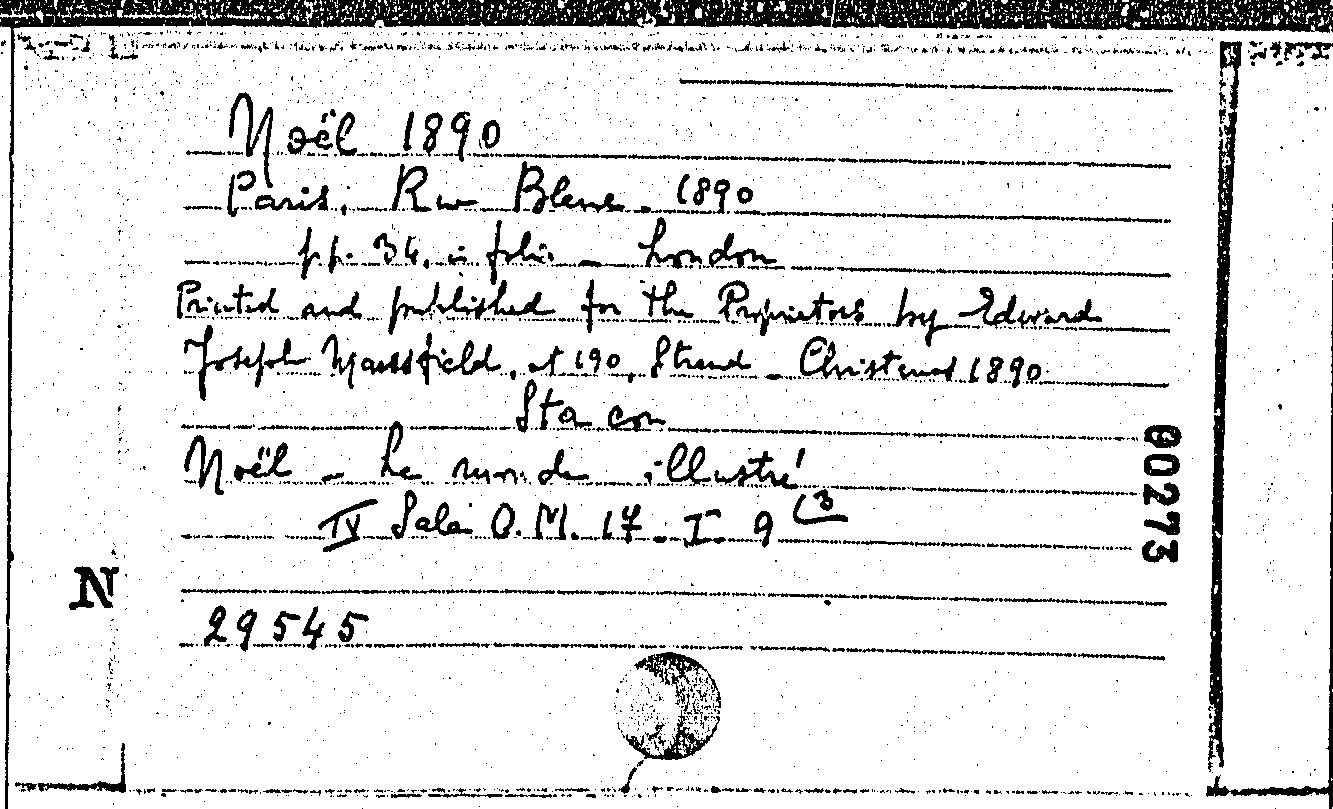 Noël 1890
Paris. Rue Bleue. 1890
pp. 34. in folio - London
Printed and published for the Proprietors by Edward
Joseph Mansfield, at 190, Strand - Christmas 1890
Sta con
Noël - Le monde illustré
IV Sala O.M. 17 - I - 9 (3
29545
N
00273